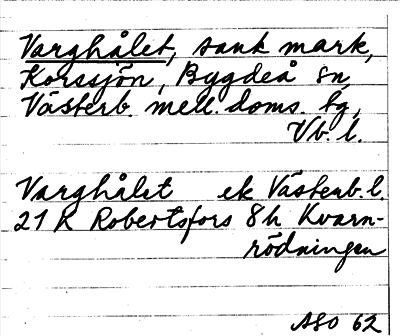 Varghålet, sank mark,
Korssjön, Bygdeå sn,
Västerb. mell. doms. fg,
Vb. l.
Varghålet ek Västerb. l.
21 K Robertsfors 8h Kvarn-
rödningen
ASO 62